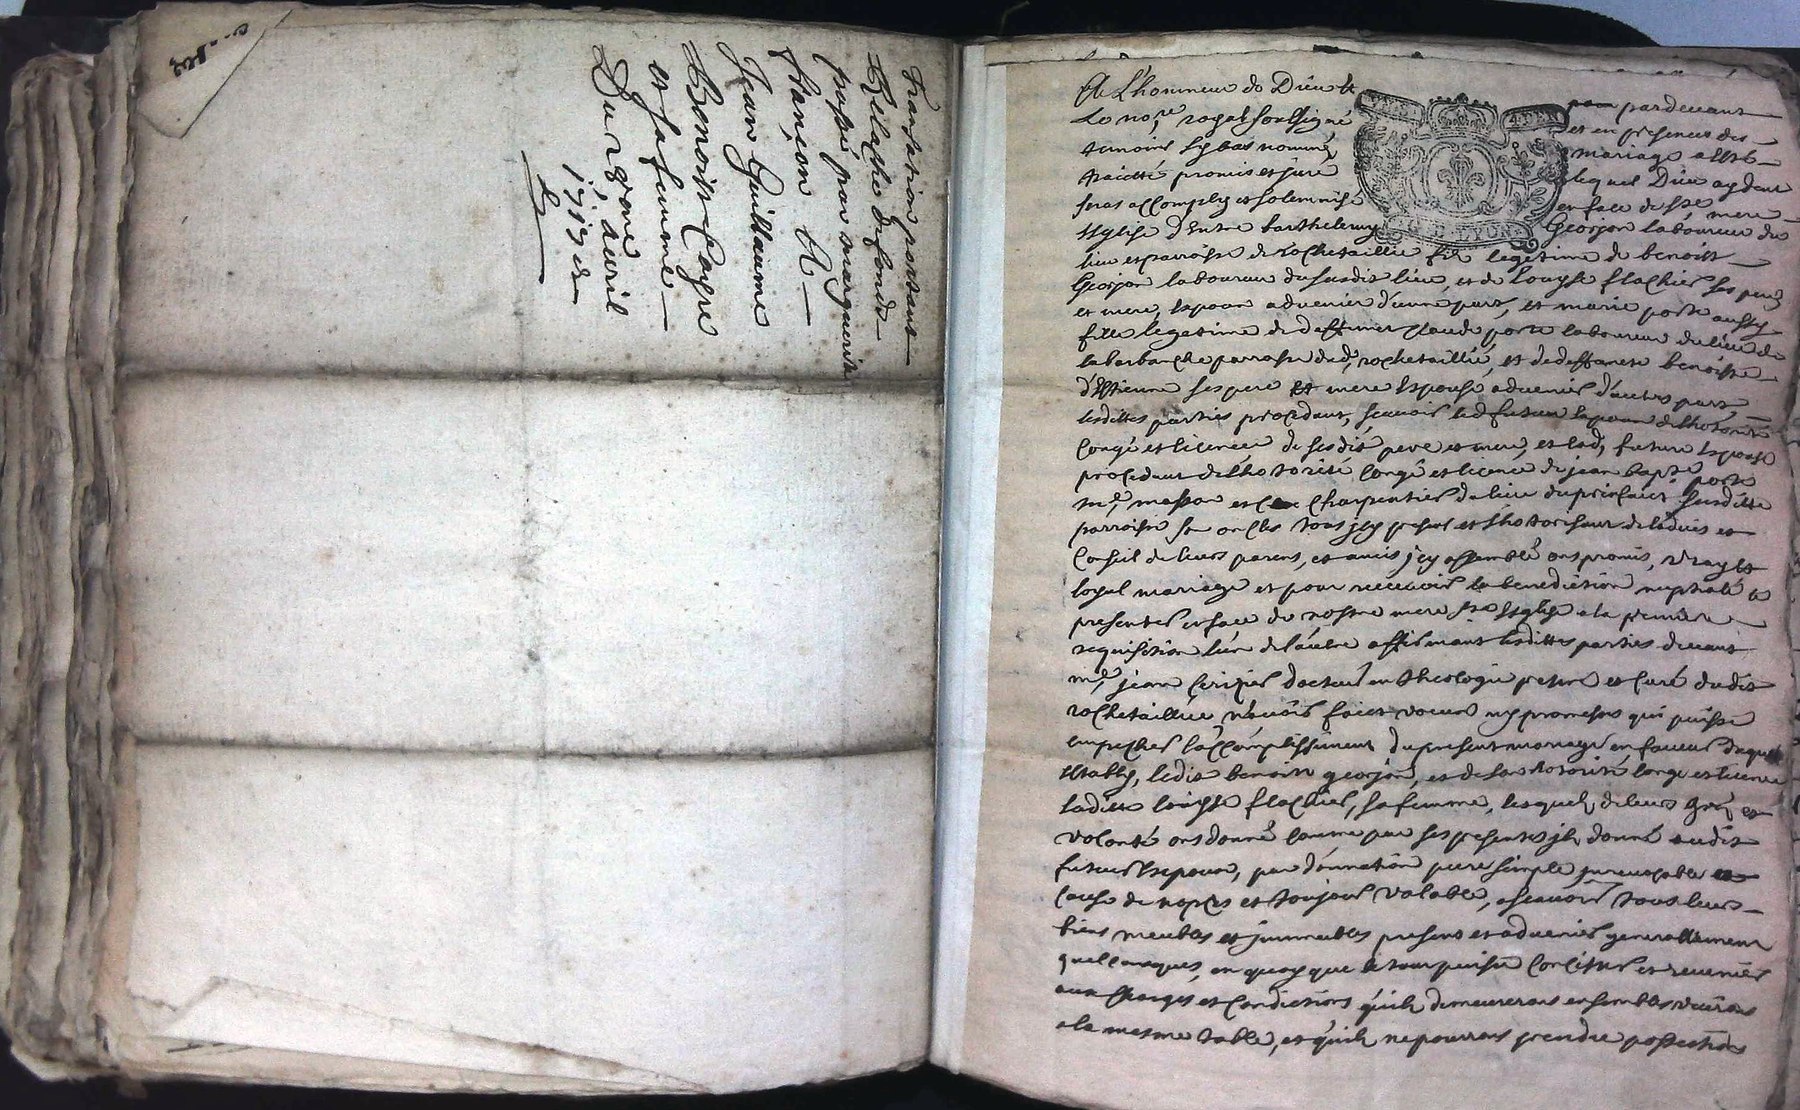 Transaction portant
Relasche de fonds
passé par marguerite
françon A
Jean Guillaume
Benoist Cogre
et sa femme
Du 29 avril
1717
A L'honneur de Dieu et pardevant
Le no.re royal soussigné et en presences des
temoins cy bas nommés mariage a esté
traicté promis et juré lequel Dieu aydant
seras accomply et solemnisé en face de s.te mere
Esglise d'Entre barthelemy Georjon laboureur du
lieu et parroisse de rochetaillie fils legitime de benoist
Georjon laboureur du susdit lieu, et de Louyse flachier ses pere
et mere, espoux advenier d'une part, et marie porte aussy
fille legetime de deffunct Claude porte laboureur du lieu de
la barbanche parroisse dud. rochetaillié, et de deffuncte benoiste
d'Estienne ses pere et mere espouse advenier d'autre part
lesdittes parties procedant, scavoir led futeur espoux de l'hotorité
Congé et licence de sesdit pere et mere, et lad. future espouse
procedant de l'hotorité congé et licence de jean bapte porte
m.e masson et charpentier du lieu susditte
parroisse son oncle tous jcy presens et l'hotorisant de l'advis et
Conseil de leurs parens, et amis jcy assemblé ont promis, vray et
loyal mariage et pour recevoir la benediction nuptiale se
presenter en face de nostre mere s.te Esglise a la premiere
requisition l'un de l'autre affirmant lesdittes parties devant
m.e jean docteur en theologie pretre et curé dudit
rochetaillie n'avoir faict voeux ny promesses qui puisse
empecher l'accomplissement du present mariage en faveur duquel
estably, ledit benoist georjon, et de son hotorité congé et licence
laditte louyse flachier, sa femme, lesquels de leurs gré et
volonté ont donné comme par ses presentes jls donne audit
futeur espoux, par donnation pure simple jrrevocable
cause de nopces et toujour valable, ascavoir tous leurs
biens meubles et jmmeubles presens et advenier generallement
quelconques, en quoy que le tout puisse concister et revenier
aux charges et condictions qu'ils demeureront ensembles vivront
a la mesme table, et qu'ils ne pourront prendre possection
G. D. LYON